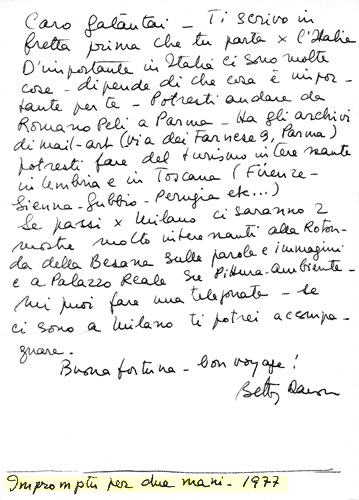 Caro Galántai - Ti scrivo in
fretta prima che tu parta x l'Italia
D'importante in Italia ci sono molte
cose - dipende di che cosa è impor-
tante per te - Potresti andare da
Romano Peli a Parma - Ha gli archivi
di mail-art (via dei Farnese 9, Parma)
potresti fare del turismo interessante
in Umbria e in Toscana (Firenze-
Sienna-Gubbio-Perugia etc...)
Se passi x Milano ci saranno 2
mostre molto interessanti alla Roton-
da della Besana sulle parole e immagini
e a Palazzo Reale su Pittura-Ambiente-
Mi puoi fare una telefonata - se
ci sono a Milano ti potrei accompa-
gnare.
Buona fortuna - bon voyage!
Betty Danon
Impromptu per due mani - 1977